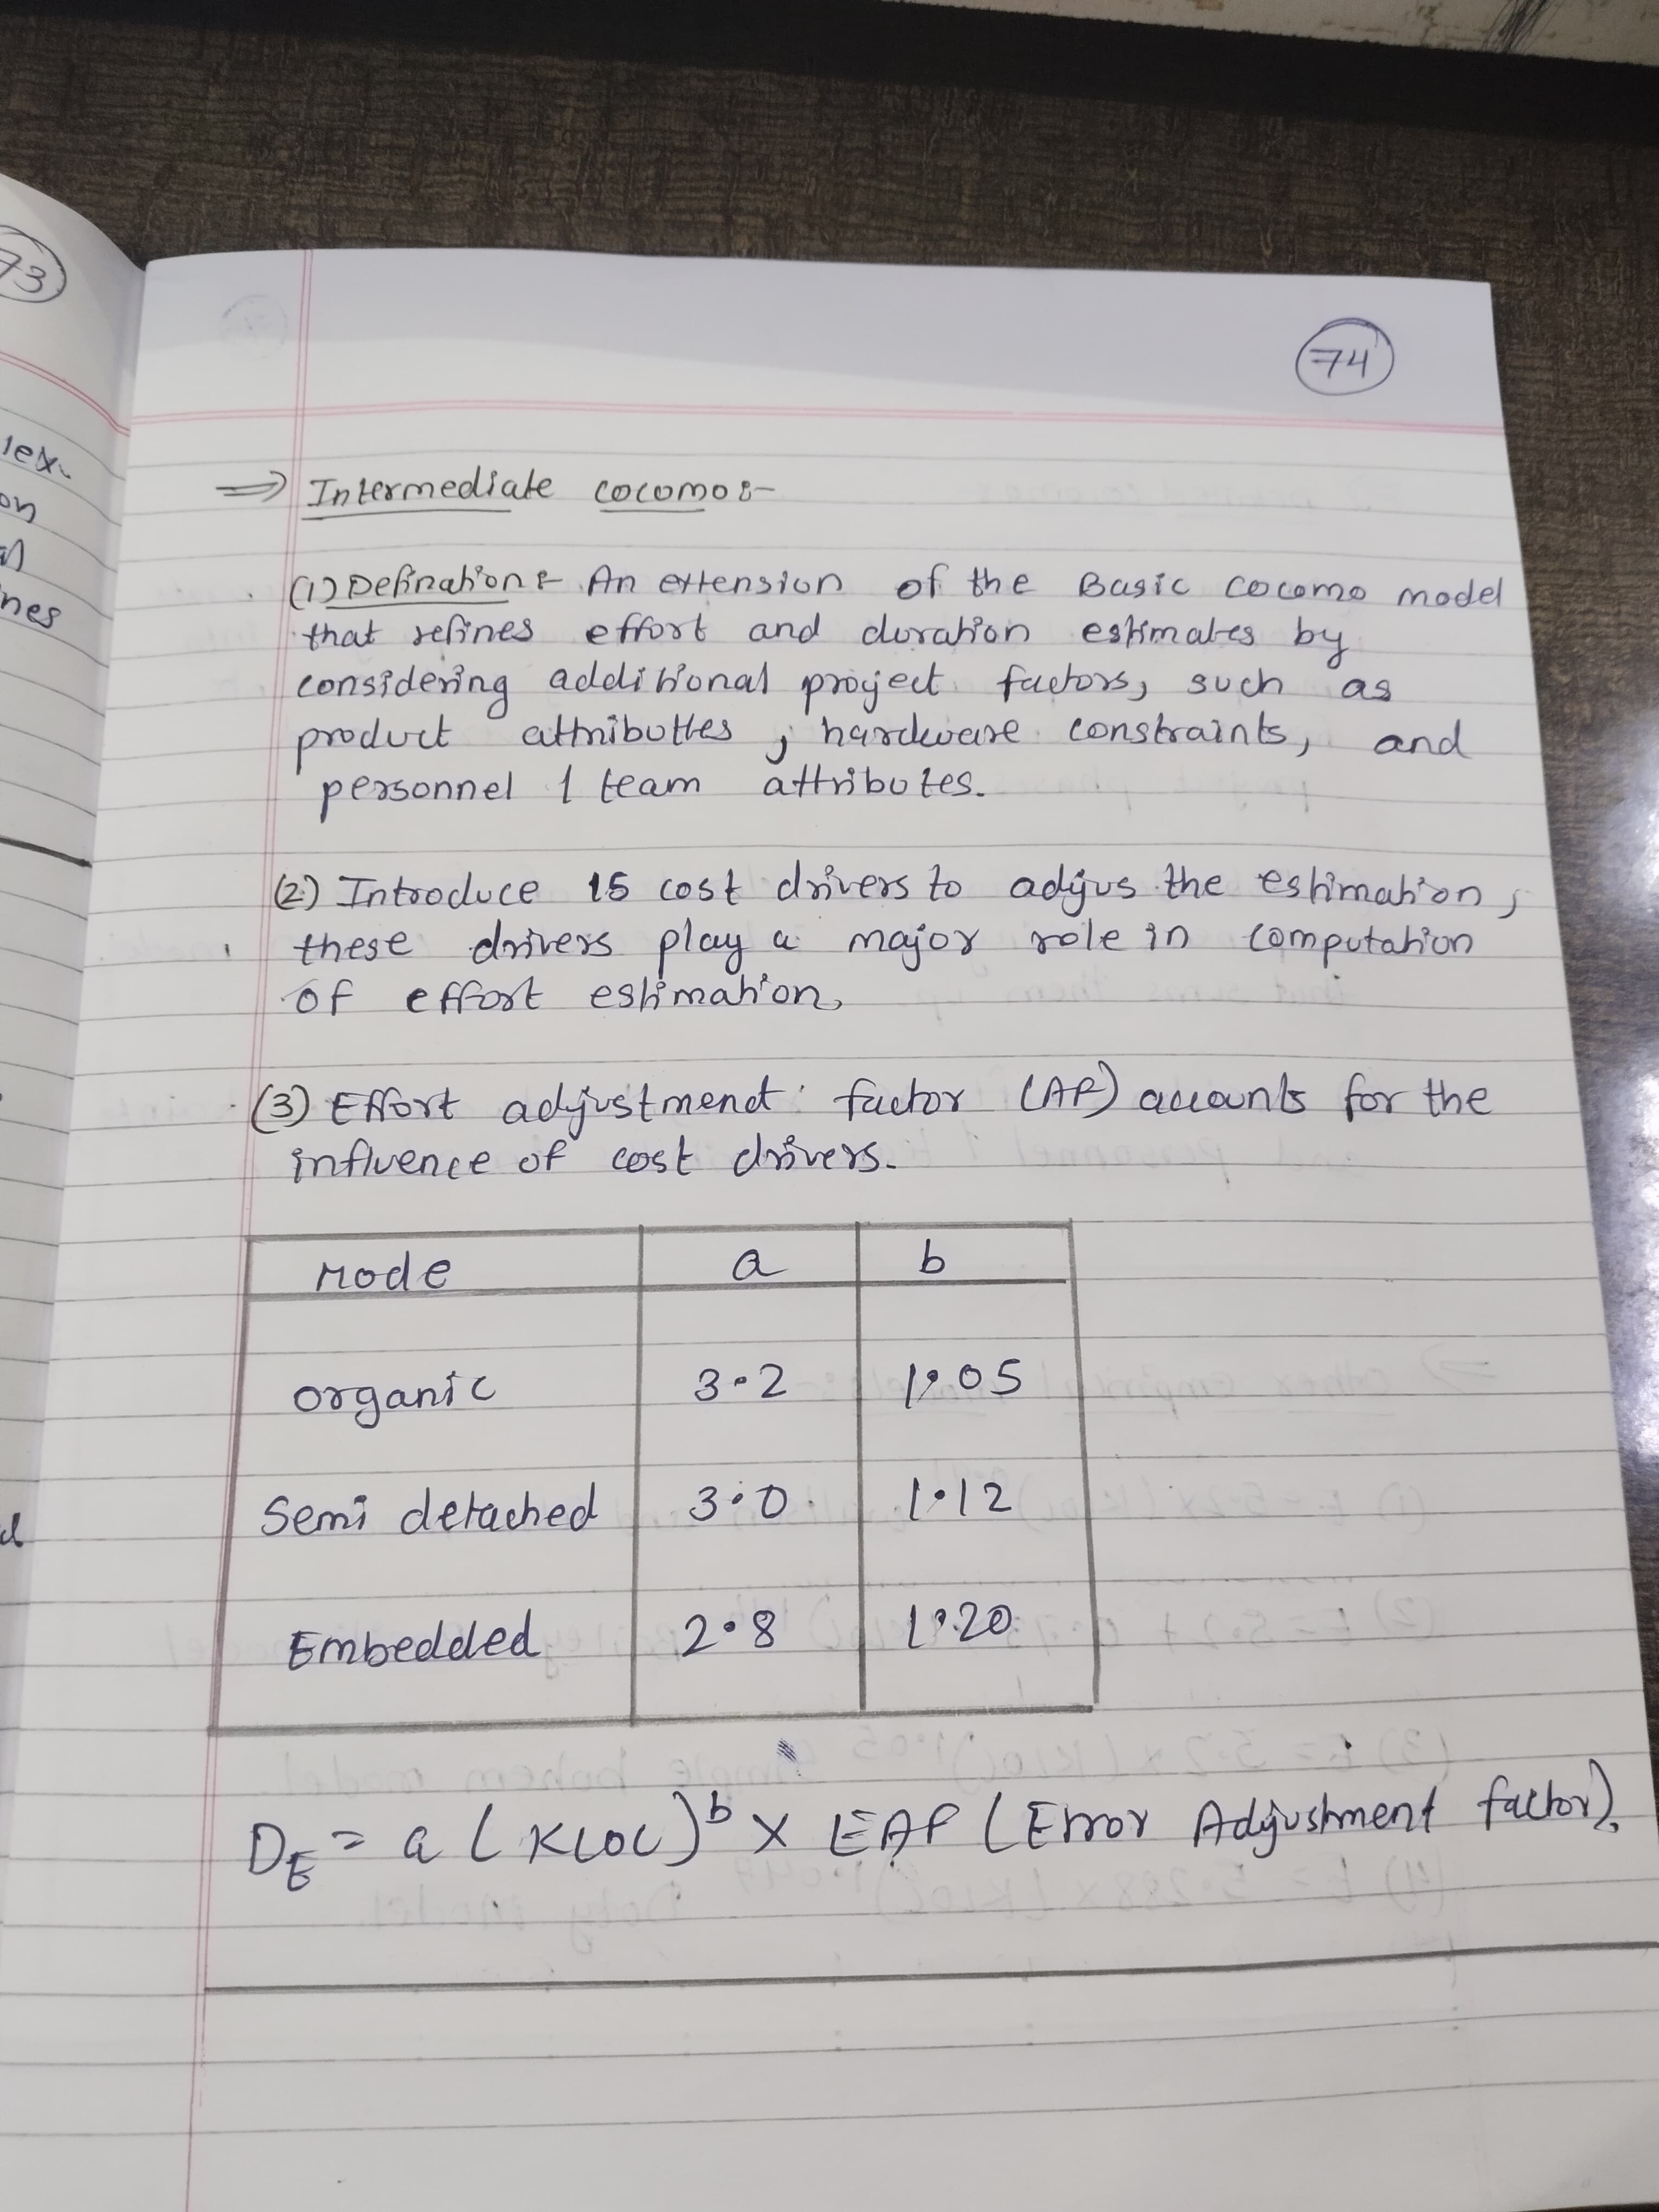 73
lex-
on
nes
74
⇒ Intermediate cocomo:-
(1) Defination:- An extension of the Basic cocomo model
that refines effort and duration estimates by
considering additional project factors, such as
product attributtes, hardware constraints, and
personnel / team attributes.
(2) Introduce 15 cost drivers to adjus the estimation,
these drivers play a major role in computation
of effort estimation,
(3) Effort adjustmenet factor (AF) accounts for the
influence of cost drivers.
Mode a b
organic 3.2 1.05
Semi detached 3.0 1.12
Embedded 2.8 1.20
D_E = a (KLOC)^b × EAF (Error Adjustment factor).